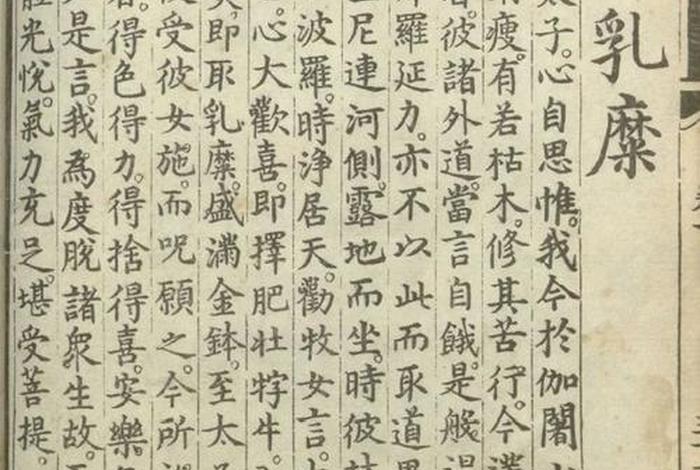 乳糜
太子。心自思惟。我今於伽闍
瘦。有若枯木。修其苦行。今
彼諸外道。當言自餓。是般
羅延力。亦不以此而取道
尼連河側。露地而坐。時彼
波羅。時淨居天。勸牧女言。
心大歡喜。即擇肥壯牸牛。
即取乳糜。盛滿金鉢。至太
受彼女施。而呪願之。今所
得色得力。得捨得喜。安樂
是言。我為度脫諸衆生故。
光悅。氣力充足。堪受菩提。